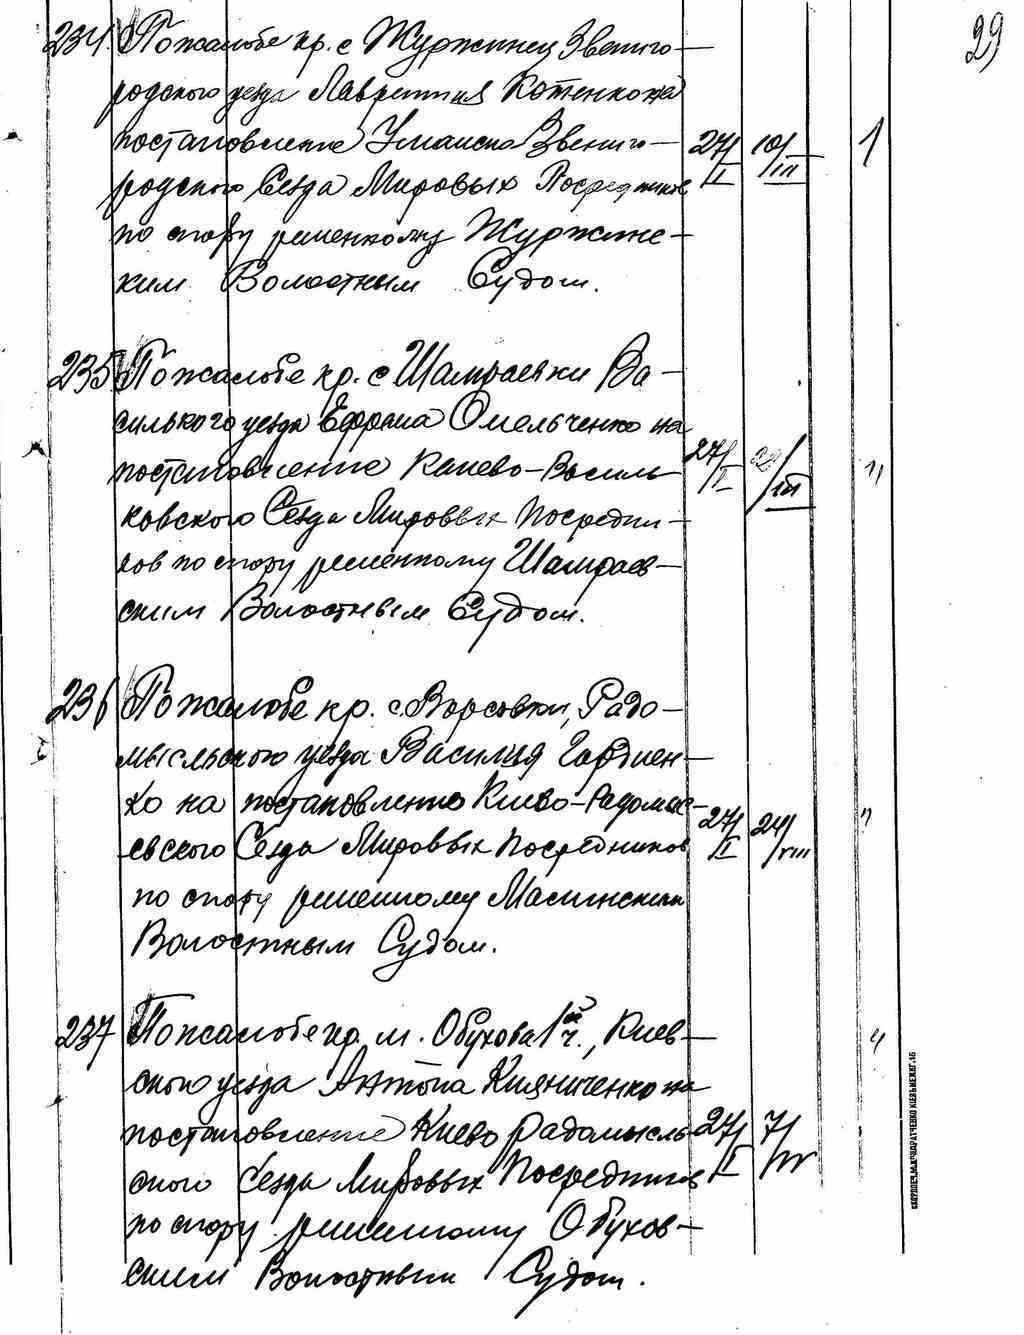 29
234. По жалобе кр. с Журжинец Звениго-
родского уезда Лаврентия Котенко на
постановление Уманско Звениго-
родского Сезда Мировых Посредников
по спору решенному Журжинс-
ким Волостным Судом.
27/I 10/III 1
235 По жалобе кр. с Шамраевки Ва-
силького уезда Ефрема Омельченко на
постановление Канево-Василь-
ковского Сезда Мировых Посредни-
ков по спору решенному Шамраев-
ским Волостным Судом.
27/I /III "
236 По жалобе кр. с. Ворсовки, Радо-
мысльского уезда Василия Гордиен-
ко на постановление Киево-Радомыс-
евского Сезда Мировых Посредников
по спору решенному
Волостным Судом.
27/I 24/VIII "
237 По жалобе кр. м. Обухова 1й ч., Киев-
ского уезда Антона Кияниченко на
постановление Киево Радомысль
ского Сезда Мировых Посредников
по спору решенному Обухов-
ским Волостным Судом.
27/I 7/IV "